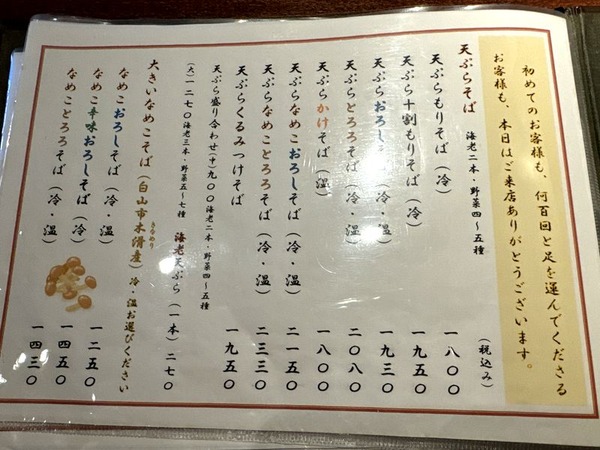 初めてのお客様も、何百回と足を運んでくださる
お客様も、本日はご来店ありがとうございます。
天ぷらそば 海老二本・野菜四~五種 (税込み)
天ぷらもりそば(冷) 一八〇〇
天ぷら十割もりそば(冷) 一九五〇
天ぷらおろしそば(冷・温) 一九三〇
天ぷらとろろそば(冷・温) 二〇八〇
天ぷらかけそば(温) 一八〇〇
天ぷらなめこおろしそば(冷・温) 二一五〇
天ぷらなめことろろそば(冷・温) 二三三〇
天ぷらくるみつけそば 一九五〇
天ぷら盛り合わせ(中)九〇〇海老二本・野菜四~五種
(大)一二七〇海老三本・野菜五~七種 海老天ぷら(一本)二七〇
大きいなめこそば(白山市木滑産)冷・温お選びください
きなめり
なめこおろしそば(冷・温) 一二五〇
なめこ辛味おろしそば(冷) 一四五〇
なめことろろそば(冷・温) 一四三〇